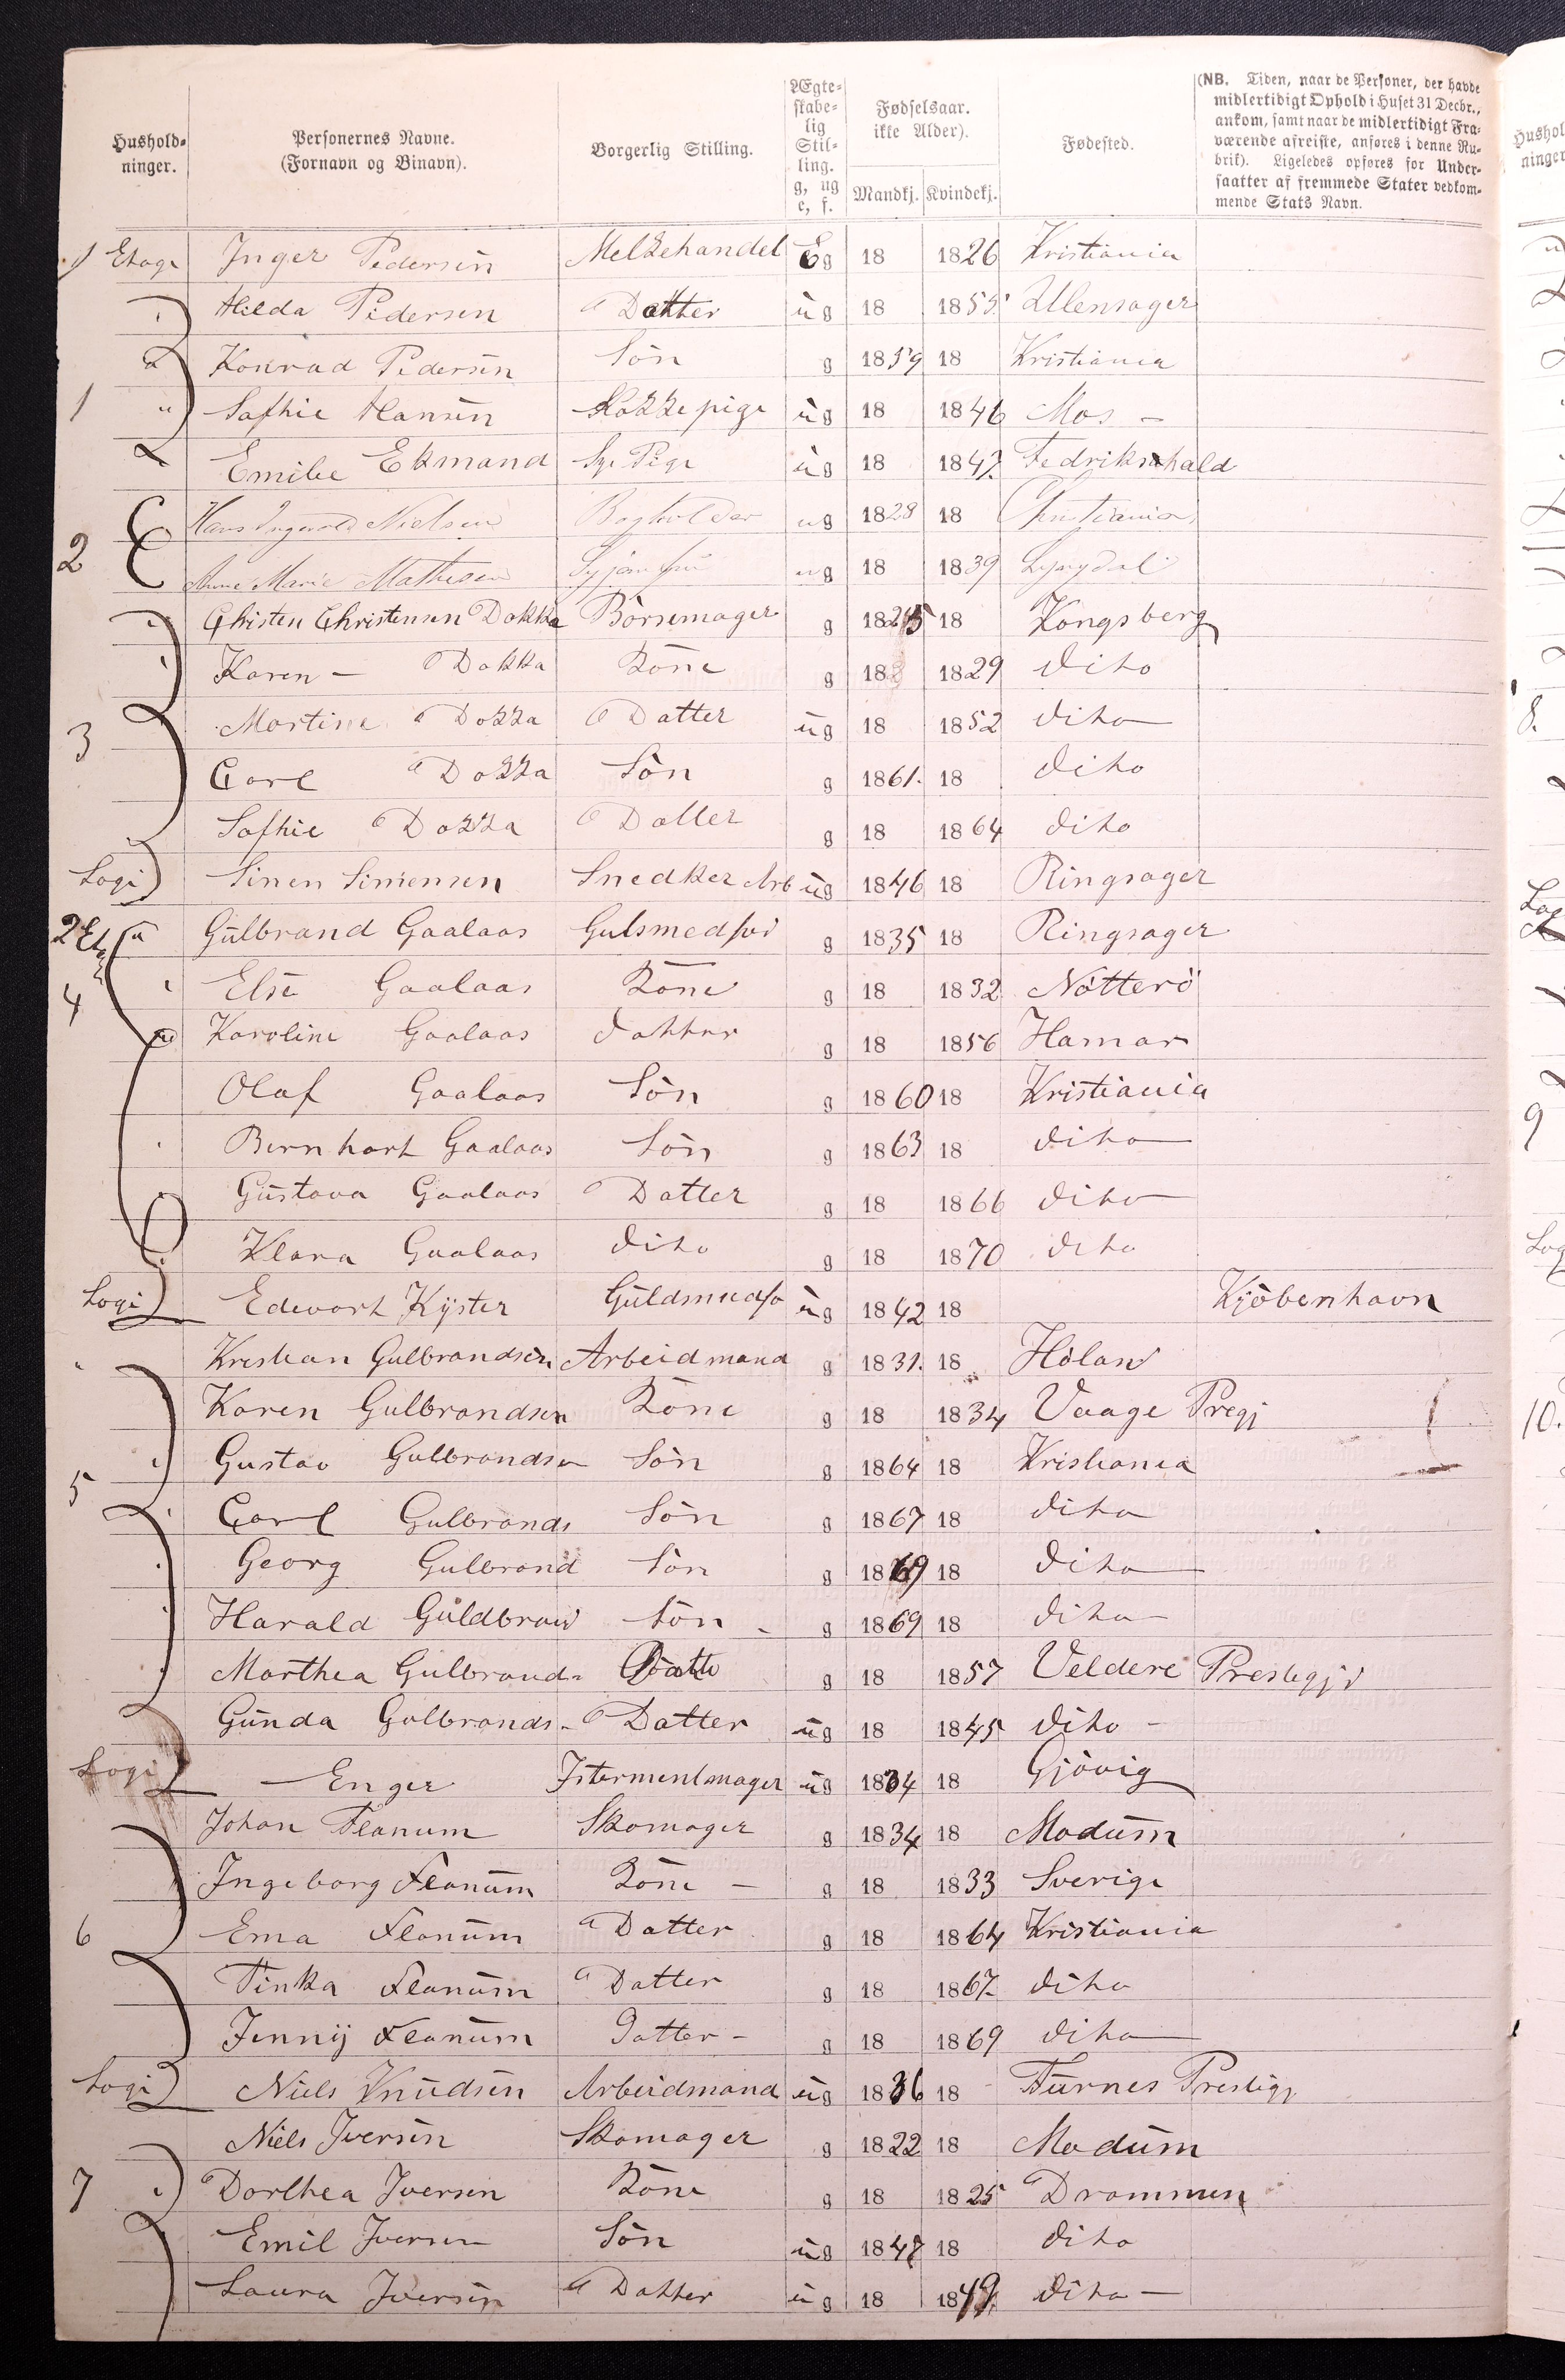 Hushold-
ninger.
Personernes Navne.
(Fornavn og Binavn).
Borgerlig Stilling.
Ægte-
skabe-
lig
Stil-
ling.
g, ug
e, f.
Fødselsaar.
ikke Alder).
Mandkj. Kvindekj.
Fødested.
(NB. Tiden, naar de Personer, der havde
midlertidigt Ophold i Huset 31 Decbr.,
ankom, samt naar de midlertidigt Fra-
værende afreiste, anføres i denne Ru-
brik). Ligeledes opføres for Under-
saatter af fremmede Stater vedkom-
mende Stats Navn.
1 Etage Inger Pedersen Melkehandel Eg 18 1826 Kristiania
Hilda Pedersen Datter ug 18 1855 Ullensager
Konrad Pedersen Søn g 1859 18 Kristiania
1 Sofhie Hansen Kokkepige ug 18 1846 Mos -
Emilie Ekmand Sy Pige ug 18 1847 Fedrikshald
2 Hans Ingevold Nielsen Bogholder ug 1828 18 Christiania
Anne Marie Mathisen Syjomfru ug 18 1839 Lyngdal
Christen Christensen Dokka Børsemager g 1825 18 Kongsberg
Karen - Dokka Kone g 18 1829 dito
3 Martine Dokka Datter ug 18 1852 dito
Carl Dokka Søn g 1861 18 dito
Sofhie Dokka Datter g 18 1864 dito
Logi Sinen Simensen Snedker Arb ug 1846 18 Ringsager
2 Etage Gulbrand Gaalaas Gulsmedsv g 1835 18 Ringsager
4 Else Gaalaas Kone g 18 1832 Nøtterø
Karoline Gaalaas datter g 18 1856 Hamar
Olaf Gaalaas Søn g 1860 18 Kristiania
Bernhart Gaalaas Søn g 1863 18 dito
Gustava Gaalaas Datter g 18 1866 dito
Klara Gaalaas dito g 18 1870 dito
Logi Edevart Kyster Guldsmedsv ug 1842 18 Kjøbenhavn
Krestian Gulbrandsen Arbeidmand g 1831. 18 Høland
Karen Gulbrandsen Kone g 18 1834 Vaage Pregj
5 Gustav Gulbrandsen Søn g 1864 18 Kristiania
Carl Gulbrands Søn g 1867 18 dito
Georg Gulbrand Søn g 1869 18 dito
Harald Guldbrand Søn - g 1869 18 dito
Marthea Gulbrand- Datte g 18 1857 Veldere Prestegjd
Gunda Gulbrands- Datter ug 18 1845 dito -
Logi - Enger Istermentmager ug 1834 18 Gjøvig
Johan Flanum Skomager g 1834 18 Modum
Ingeborg Flanum Kone - g 18 1833 Sverige
6 Ema Flanum Datter g 18 1864 Kristiania
Tinka Flanum Datter g 18 1867 dito
Jenny Flanum Datter - g 18 1869 dito
Logi Niels Knudsen Arbeidmand ug 1836 18 Furnes Prestigj
Niels Iversen Skomager g 1822 18 Modum
7 Dorthea Iversen Kone g 18 1825 Drammen
Emil Iversen Søn ug 1847 18 dito
Laura Iversen Datter ug 18 1849 dito -